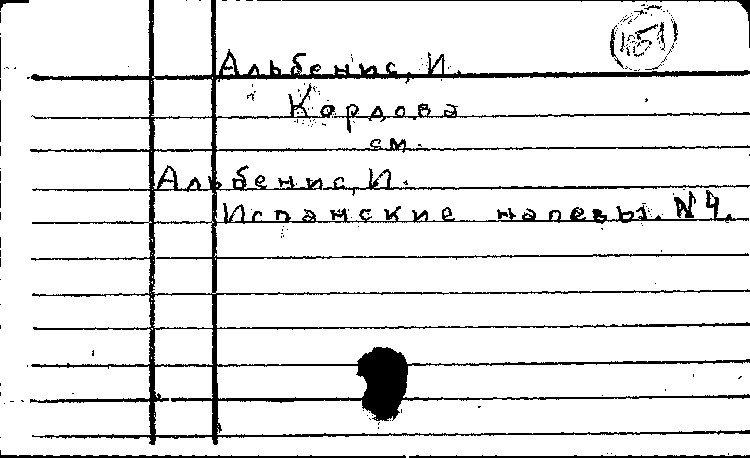 Альбенис, И.
Кордова
см.
Альбенис, И.
Испанские напевы. N 4.